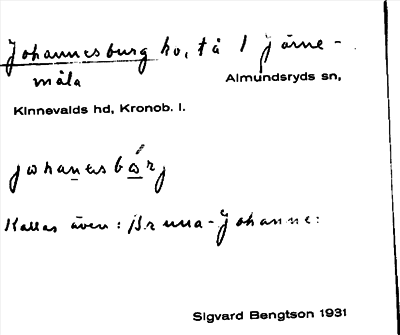 Johannesburg ho, tå 1 Järne-
måla Almundsryds sn,
Kinnevalds hd, Kronob. l.
johanəsbárj
Kallas även: Bruna-Johanne:
Sigvard Bengtson 1931